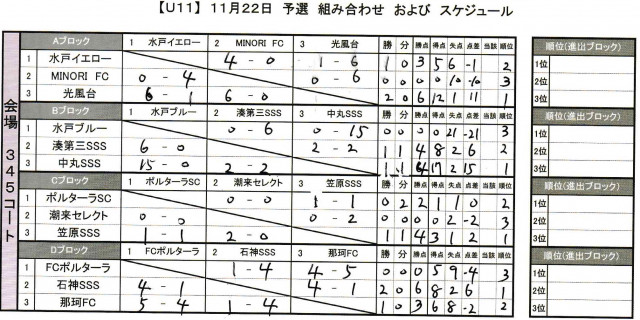 【U11】 11月22日 予選 組み合わせ および スケジュール
会場 345コート
Aブロック 1 水戸イエロー 2 MINORI FC 3 光風台 勝 分 勝点 得点 失点 点差 当該 順位
1 水戸イエロー 4 - 0 1 - 6 1 0 3 5 6 -1 2
2 MINORI FC 0 - 4 0 - 6 0 0 0 0 10 -10 3
3 光風台 6 - 1 6 - 0 2 0 6 12 1 11 1
Bブロック 1 水戸ブルー 2 湊第三SSS 3 中丸SSS 勝 分 勝点 得点 失点 点差 当該 順位
1 水戸ブルー 0 - 6 0 - 15 0 0 0 0 21 -21 3
2 湊第三SSS 6 - 0 2 - 2 1 1 4 8 2 6 2
3 中丸SSS 15 - 0 2 - 2 1 1 4 17 2 15 1
Cブロック 1 ポルターラSC 2 潮来セレクト 3 笠原SSS 勝 分 勝点 得点 失点 点差 当該 順位
1 ポルターラSC 0 - 0 1 - 1 0 2 2 1 1 0 2
2 潮来セレクト 0 - 0 0 - 2 0 0 0 2 -2 3
3 笠原SSS 1 - 1 2 - 0 1 1 4 3 1 2 1
Dブロック 1 FCポルターラ 2 石神SSS 3 那珂FC 勝 分 勝点 得点 失点 点差 当該 順位
1 FCポルターラ 1 - 4 4 - 5 0 0 0 5 9 -4 3
2 石神SSS 4 - 1 4 - 1 2 0 6 8 2 6 1
3 那珂FC 5 - 4 1 - 4 1 0 3 6 8 -2 2
順位(進出ブロック)
1位
2位
3位
順位(進出ブロック)
1位
2位
3位
順位(進出ブロック)
1位
2位
3位
順位(進出ブロック)
1位
2位
3位